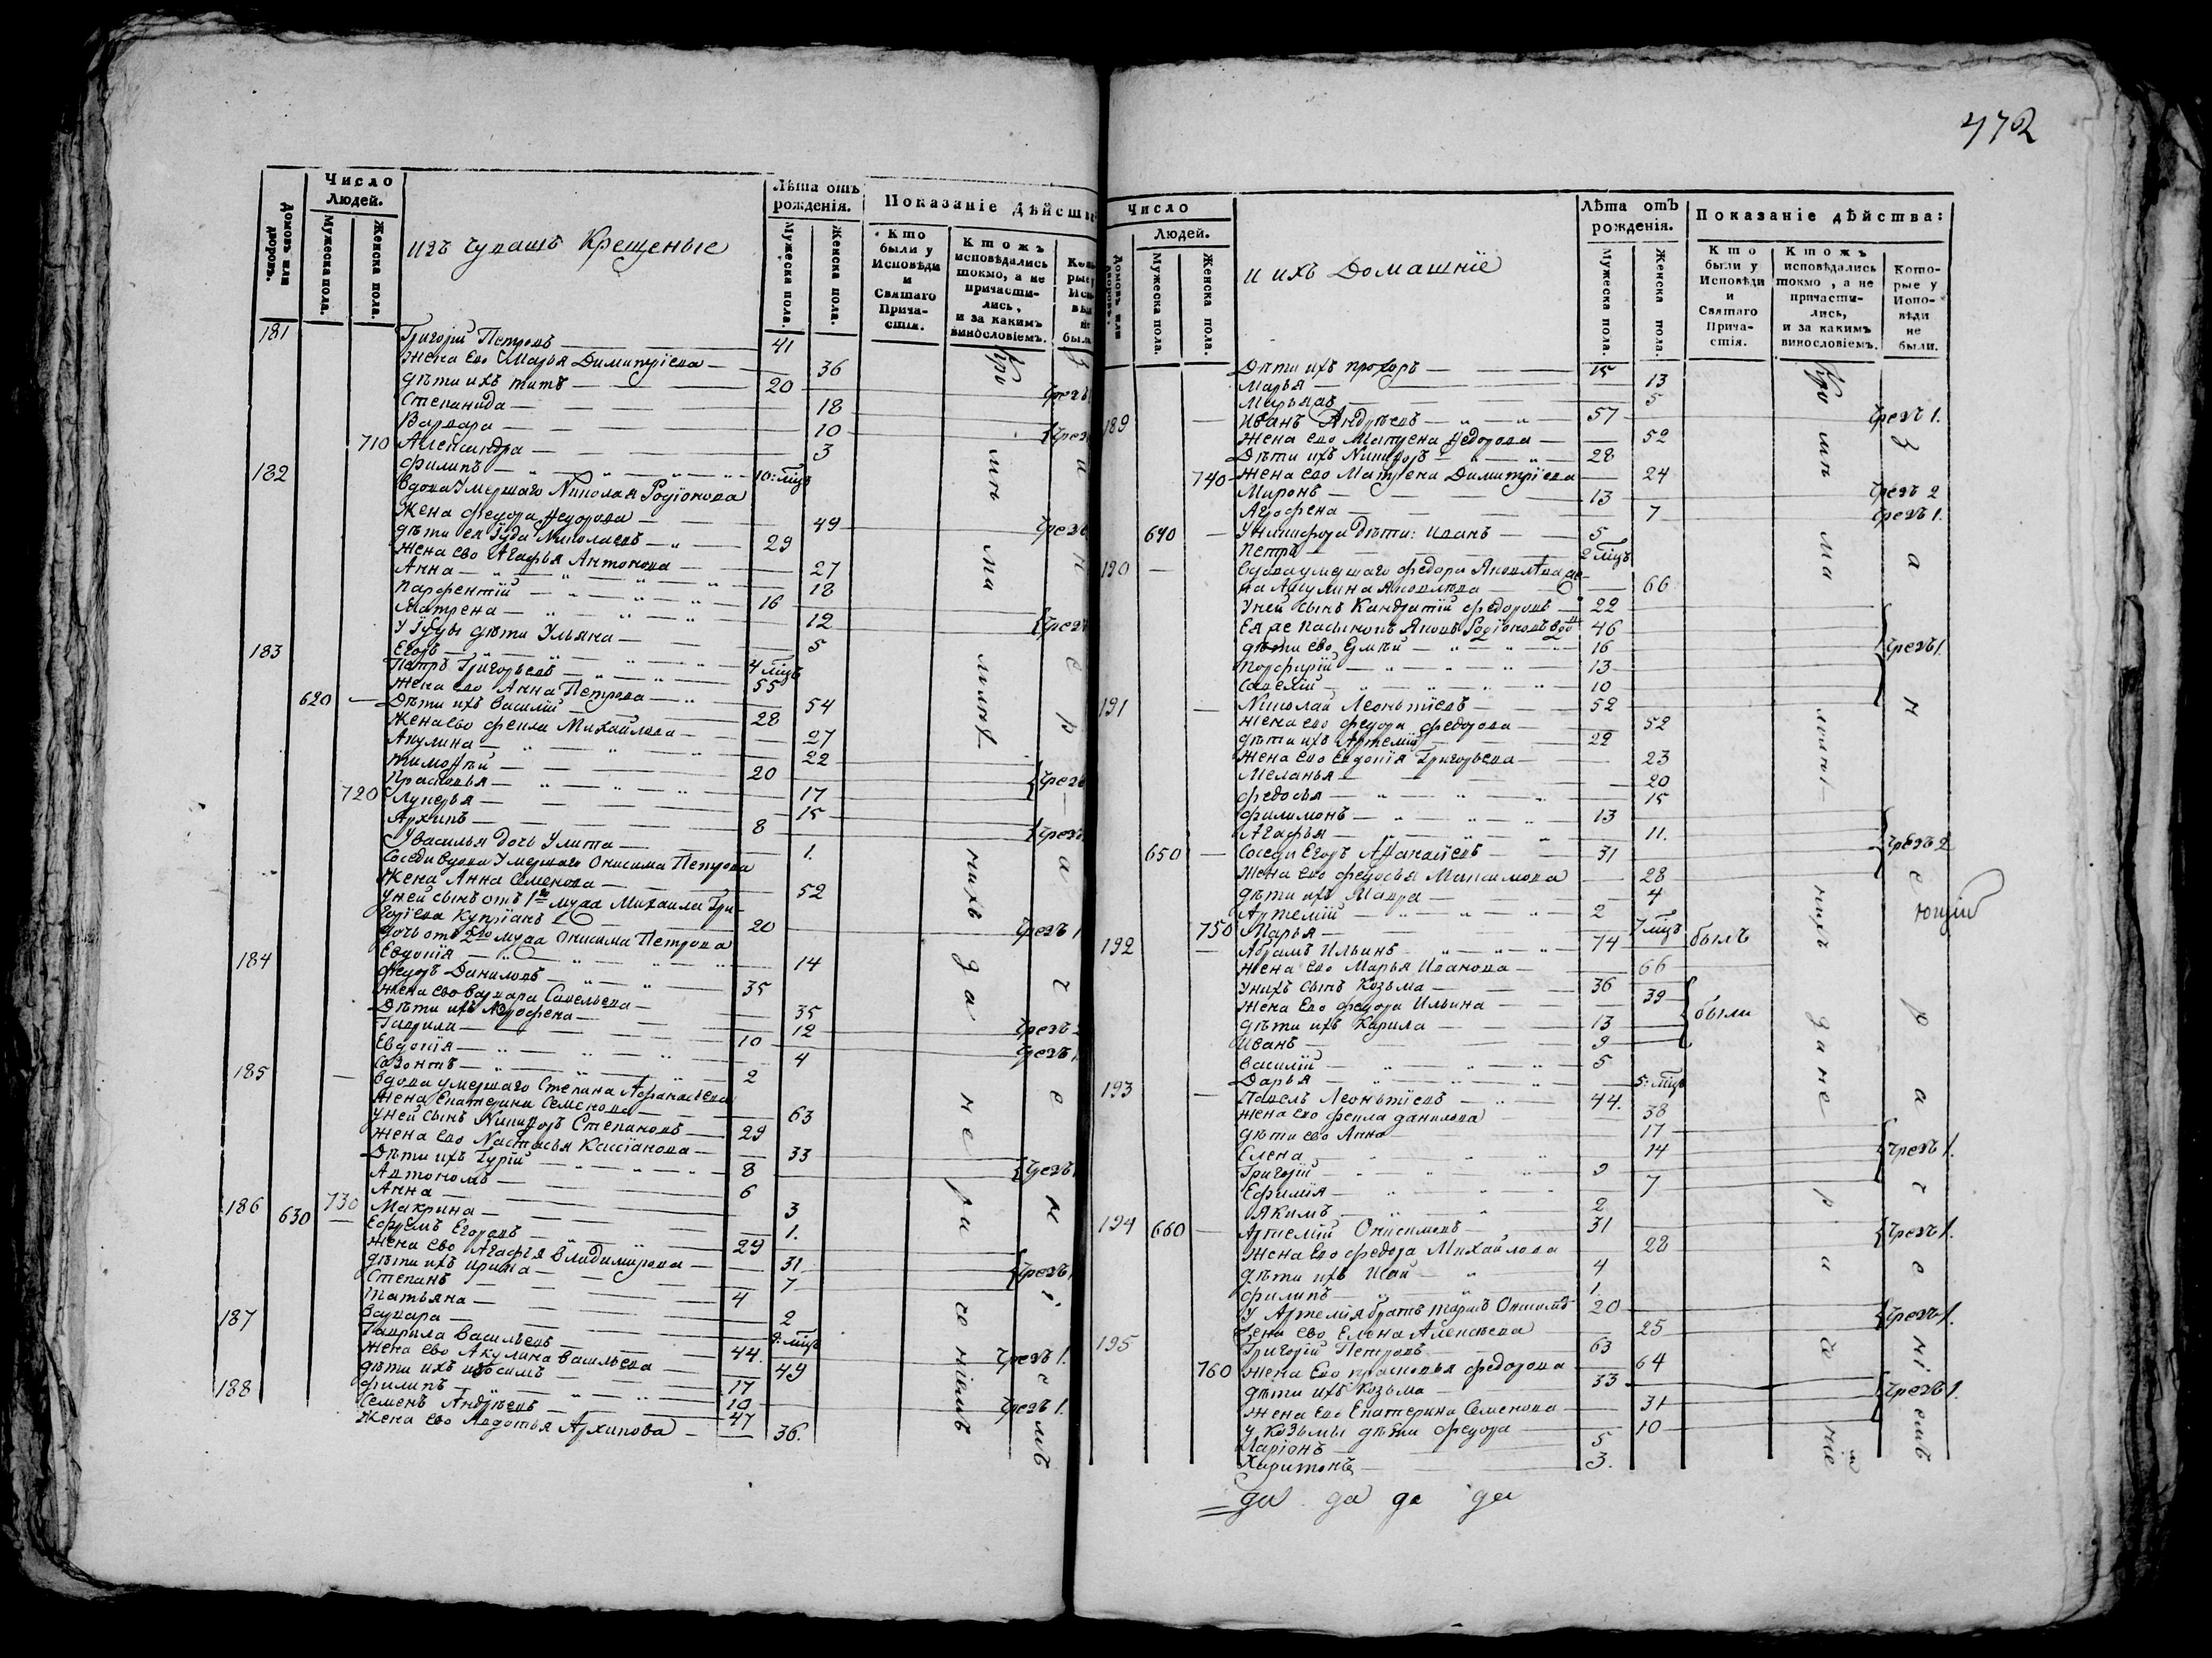 472
Число
Людей.
Домовъ или дворовъ.
Мужеска пола.
Женска пола.
изъ чувашъ Крещеные
Лѣта отъ
рожденія.
Мужеска пола.
Женска пола.
Показаніе дѣйства
Кто были у Исповѣди и Святаго Причастія.
Ктожъ исповѣдались токмо, а не причастились, и за какимъ винословіемъ.
181 Григорій Петровъ 41
Жена Ево Марья Димитріева 36
дѣти ихъ титъ 20
Степанида 18
Варвара 10
710 Александра 3
Филипъ 10: мцъ
182 вдова Умершаго Николая Родіонова
Жена федора Федорова 49
дѣти ея Іуда Николаевъ 29
жена ево Агафья Антонова 27
Анна 18
Парфентій 16
Матрена 12
У Іуды дѣти Ульяна 5
Егоръ 4 мцъ
183 Петръ Григорьевъ 55
жена ево Анна Петрова 54
620 Дѣти ихъ василій 28
Жена ево фекла Михайлова 27
Акулина 22
тимофѣй 20
Прасковья 17
720 Лукерья 15
Архипъ 8
У василья дочь Улита 1.
Соседи вдова Умершаго Онисима Петрова
Жена Анна Семенова 52
У ней сынъ отъ 1го мужа Михаила Гри-
горіева Купріанъ 20
дочь отъ 2го мужа Онисима Петрова
Евдокія 14
184 Федоръ Даниловъ 35
жена ево варвара Савельева 35
Дѣти ихъ Агрофена 12
Гаврила 10
Евдокія 4
Созонтъ 2
185 вдова умершаго Степана Афанасьева
жена Екатерина Семенова 63
У ней сынъ Никифоръ Степановъ 29
жена ево Настасья Кассіанова 33
Дѣти ихъ Гурій 8
Автономъ 6
Анна 3
730 Макрина 1.
186 630 Ефремъ Егоровъ 29
жена ево Агафья владимірова 31
дѣти ихъ ирина 7
Степанъ 4
татьяна 2
варвара 9: мцъ
187 Гаврила васильевъ 44.
жена ево Акулина васильева 49
дѣти ихъ 17
филипъ 10
188 Семенъ Андреевъ 47
Жена ево Авдотья Архипова 36.
Число
Людей.
Домовъ или дворовъ.
Мужеска пола.
Женска пола.
и ихъ Домашніе
Лѣта отъ
рожденія.
Мужеска пола.
Женска пола.
Показаніе дѣйства:
Кто были у Исповѣди и Святаго Причастія.
Ктожъ исповѣдались токмо, а не причастились, и за какимъ винословіемъ.
Которые у Исповѣди не были.
Дѣти ихъ прохоръ 15
Марья 13
5
189 Иванъ Андреевъ 57 чрезъ 1.
жена ево Матрена федорова 52
Дѣти ихъ Никифоръ 28
740 жена ево Матрена Димитріева 24
Миронъ 13 чрезъ 2
Агрофена 7 чрезъ 1.
640 У Никифора Дѣти: Иванъ 5
Петръ 2 мцъ
190 вдова умершаго федора Яковлева же-
на Акулина Яковлева 66
У ней сынъ Кандратій федоровъ 22
Ея же пасынокъ Яковъ Родіоновъ вдо 46
дѣти ево 16 чрезъ 1
Порфирій 13
Савелій 10
191 Николай Леонтіевъ 52
жена ево федора федорова 52
дѣти ихъ Артемій 22
Жена ево Евдокія Григорьева 23
Меланья 20
федосья 15
филимонъ 13
Агафья 11. чрезъ 2
650 Соседи Егоръ Афанасіевъ 31
жена ево федосья Максимова 28
дѣти ихъ Мавра 4
Артемій 2
750 Марья 7 мцъ
192 Абрамъ Ильинъ 74 былъ
жена ево Марья Иванова 66
У нихъ сынъ Козьма 36
жена Ево федора Ильина 39 были
дѣти ихъ Карила 13
Иванъ 9
василій 5
Дарья 5: мцъ
193 Павелъ Леонтіевъ 44.
жена ево фекла данилова 38
дѣти ево Анна 17
Елена 14 чрезъ 1.
Григорій 9
Ефимія 7
Якимъ 2
194 660 Артемій Онисимовъ 31 чрезъ 1.
Жена Ево федора Михайлова 28
дѣти ихъ Исай 4
филипъ 1.
У Артемія братъ 20 чрезъ 1.
жена ево Елена Алексѣева 25
195 Григорій Петровъ 63
760 жена Ево прасковья федорова 64
дѣти ихъ Козьма 33 чрезъ 1.
жена Ево Екатерина Семенова 31
у Козьмы дѣти федора 10
Ларіонъ 5
Харитонъ 3.